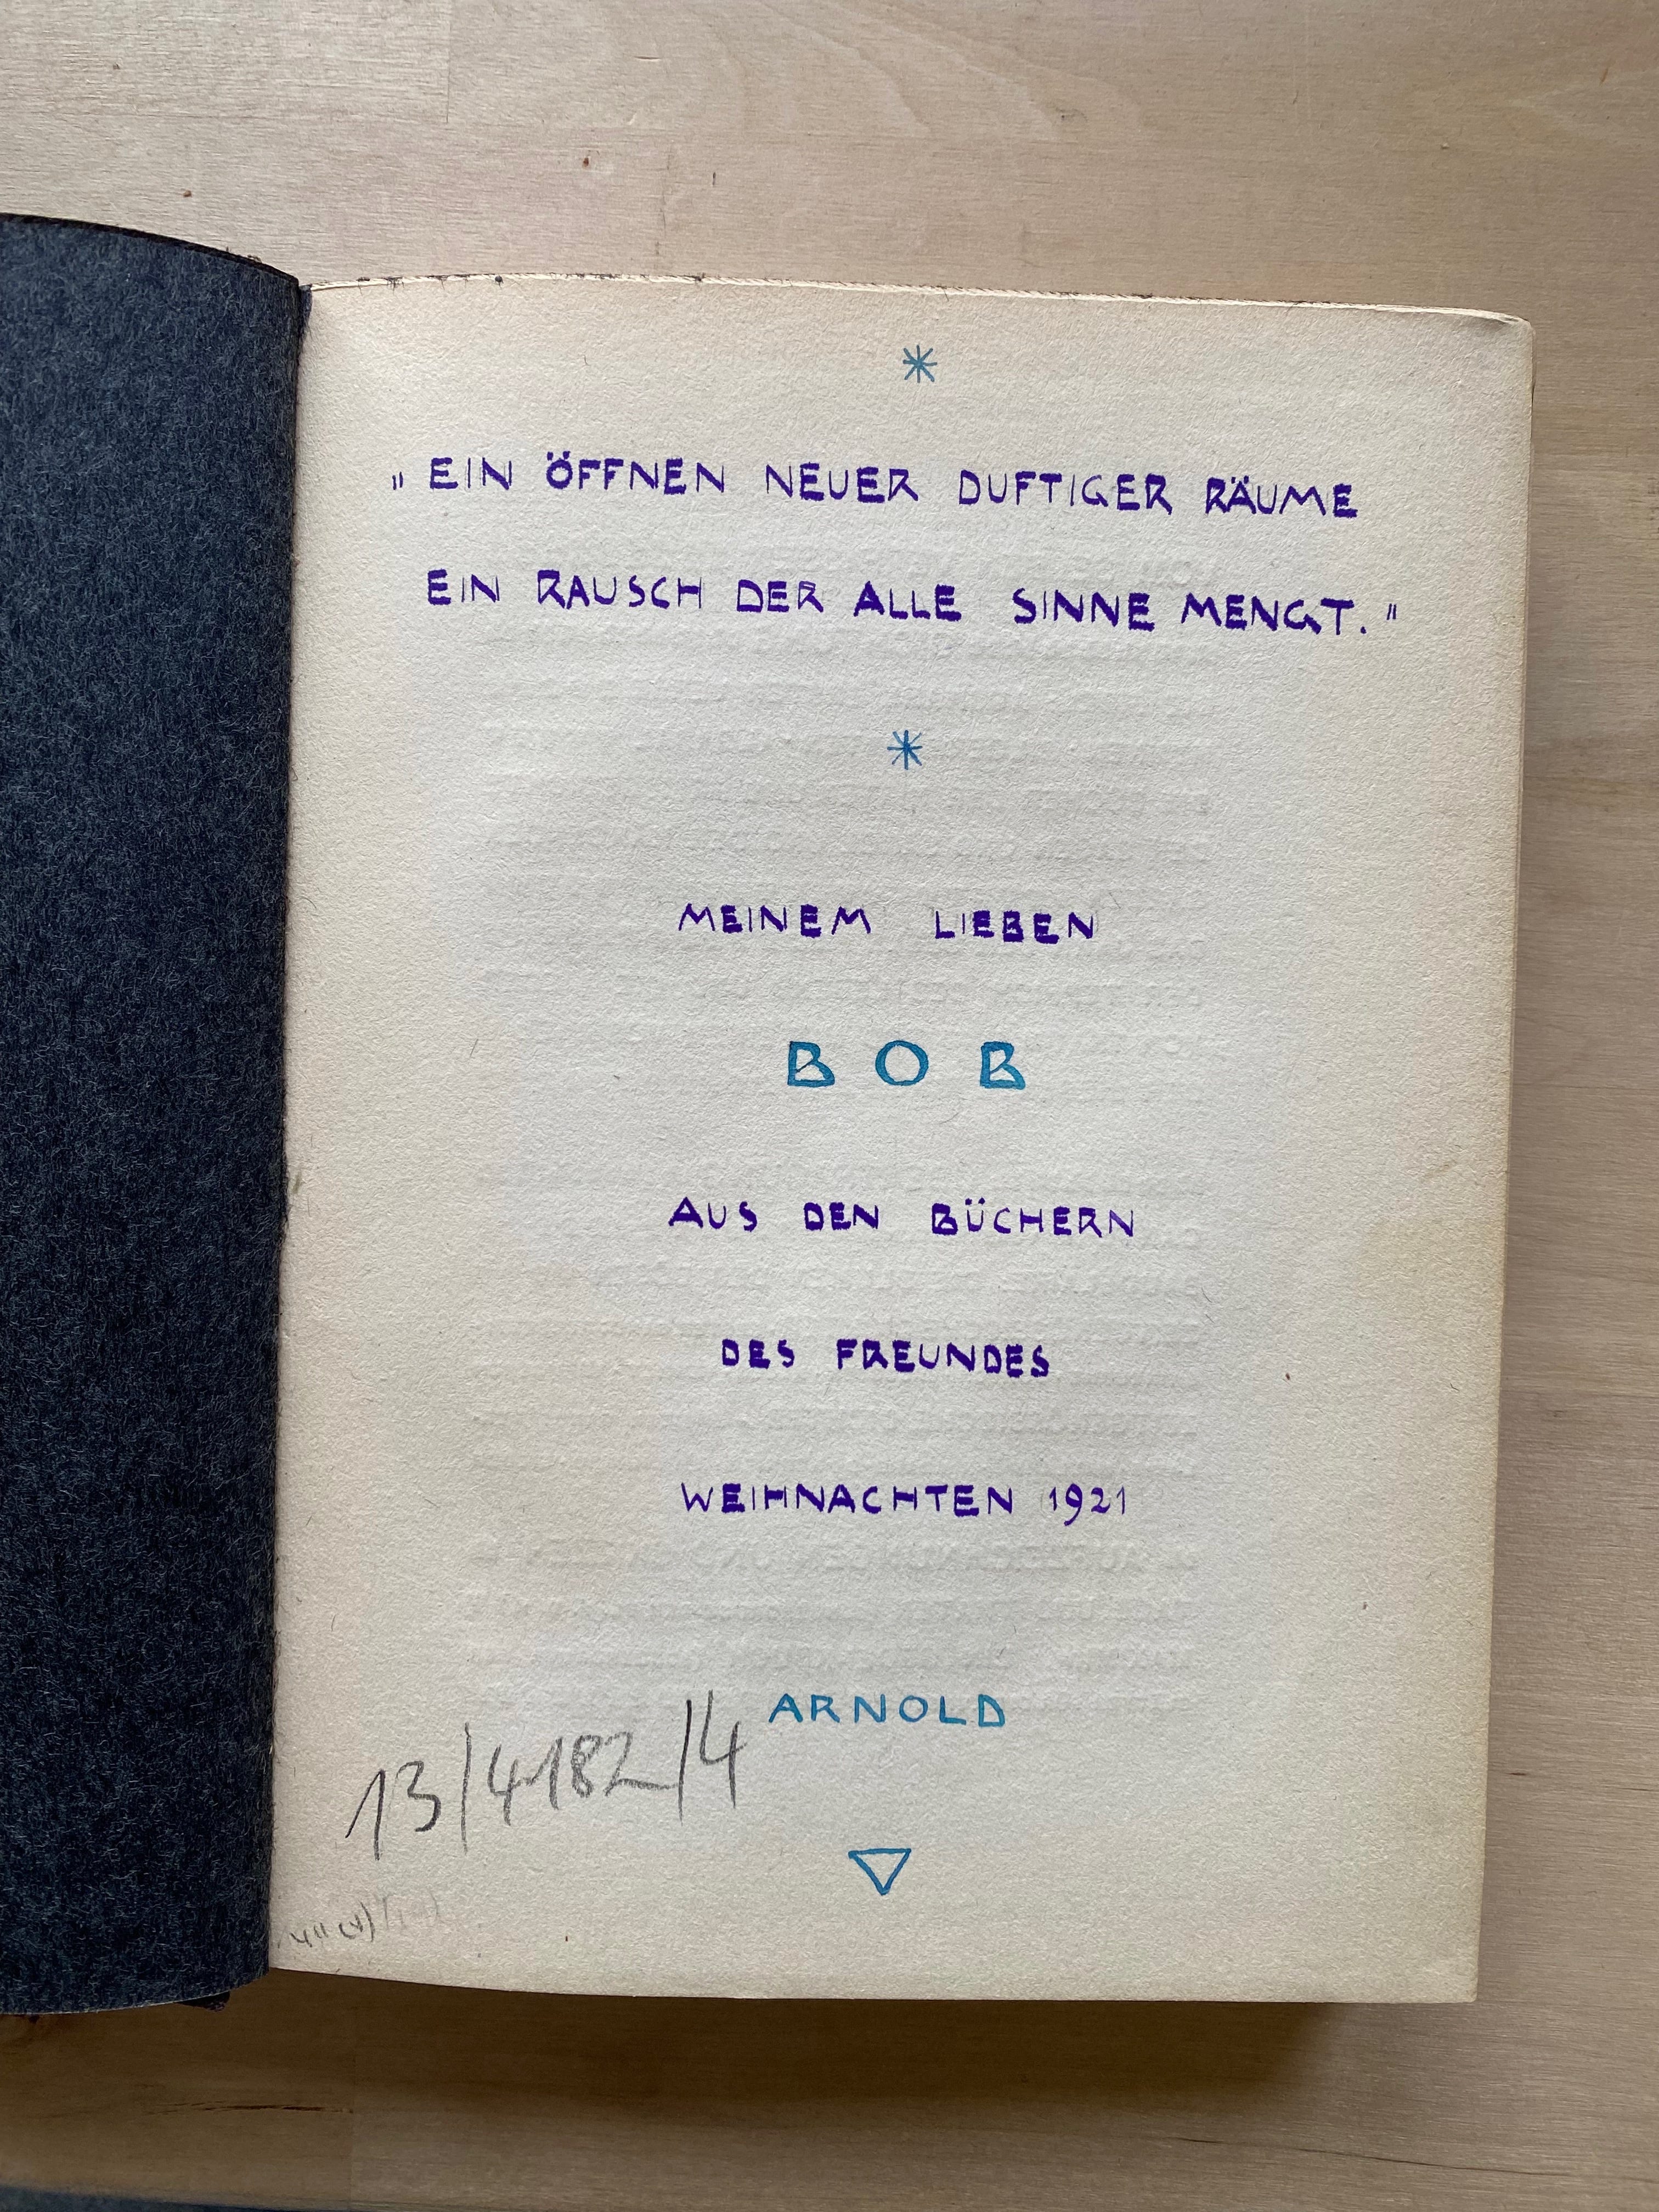 *
„EIN ÖFFNEN NEUER DUFTIGER RÄUME
EIN RAUSCH DER ALLE SINNE MENGT."
*
MEINEM LIEBEN
BOB
AUS DEN BÜCHERN
DES FREUNDES
WEIHNACHTEN 1921
ARNOLD
13/4182/4